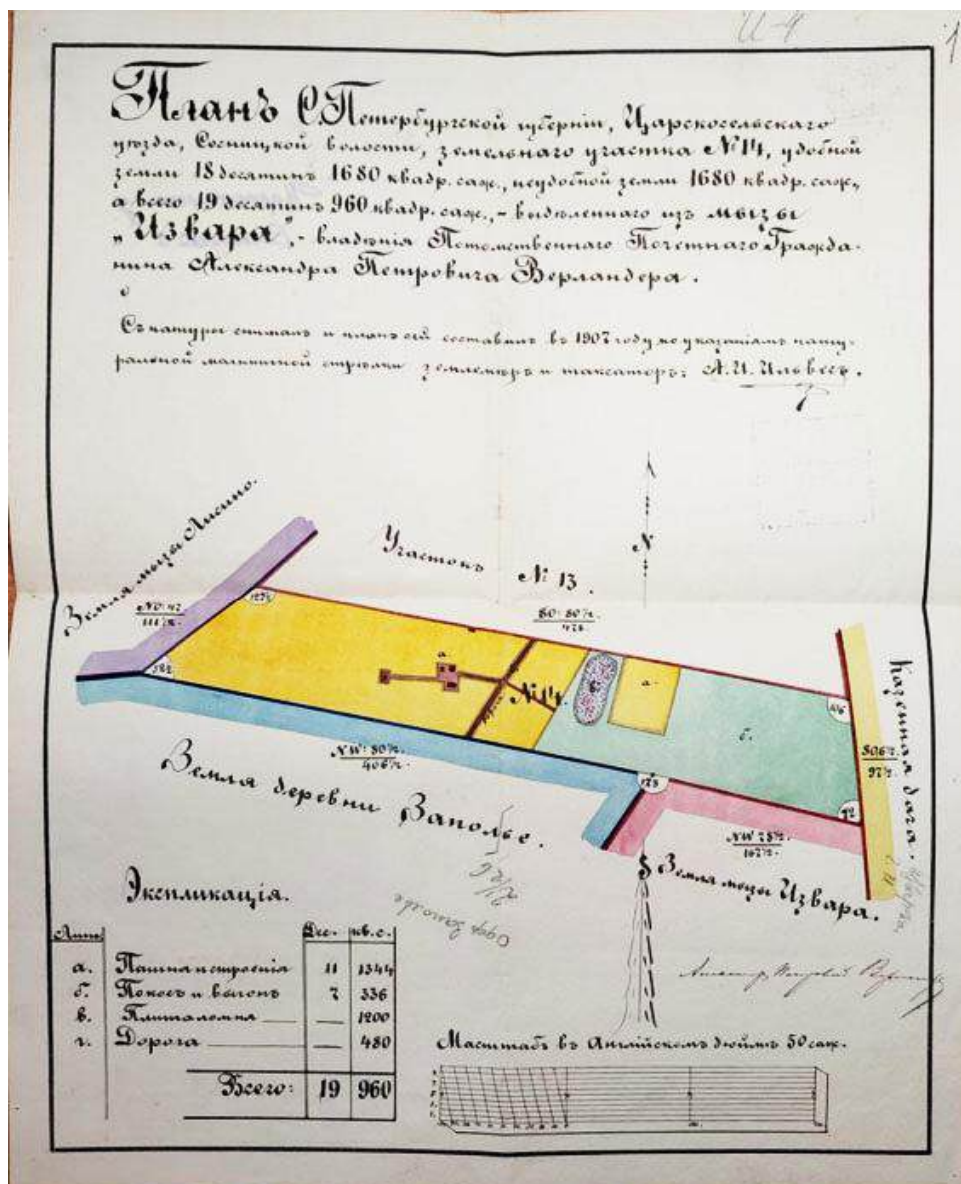 И-4
1
Планъ С.Петербургской губерніи, Царскосельскаго
уѣзда, Сосницкой волости, земельнаго участка №14, удобной
земли 18 десятинъ 1680 квадр. саж., неудобной земли 1680 квадр. саж.,
а всего 19 десятинъ 960 квадр. саж., - выдѣленнаго изъ мызы
„Извара", - владѣнія Потомственнаго Почетнаго Гражда-
нина Александра Петровича Верландера.
Съ натуры снималъ и планъ сей составилъ въ 1907 году по указаніямъ нату-
ральной магнитной стрѣлки землемѣръ и таксаторъ: А.И. Ильвесъ.
Земля мызы Лисино.
Участокъ № 13.
N
SO: 80½
478
127½
а
№ 14.
в.
а.
б.
106
Казенная дача.
806½
97½
NW: 80½
406½
Земля деревни Заполье.
178
72
NW 78½
167½
S
Земля мызы Извара.
Экспликація.
Дес. кв.с.
а. Пашня и строенія 11 1344
б. Покосъ и выгонъ 7 336
в. Плиталомня — 1200
г. Дорога — 480
Всего: 19 960
Масштабъ въ Англійскомъ дюймѣ 50 саж.